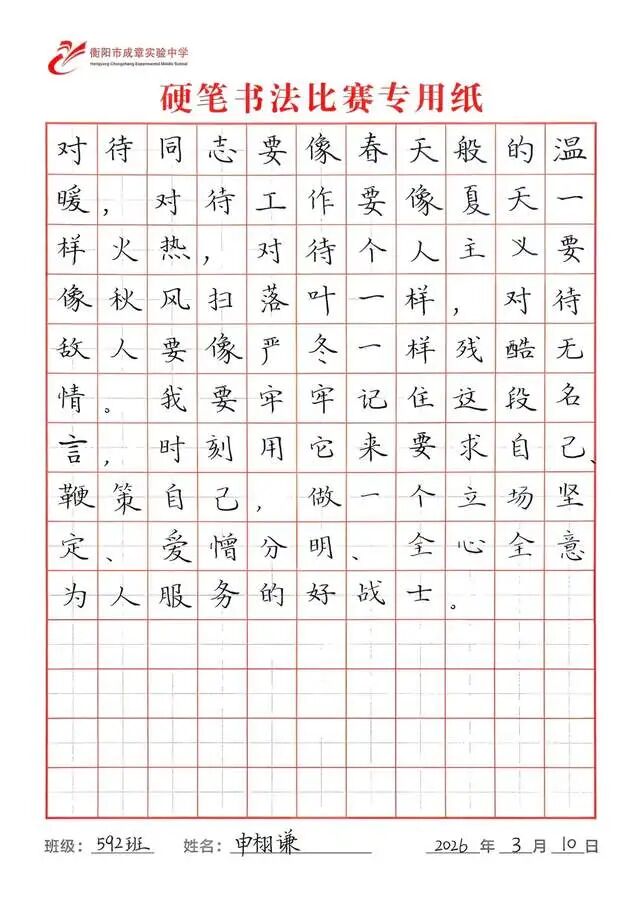 衡阳市成章实验中学
Hengyang Chengzhang Experimental Middle School
硬笔书法比赛专用纸
对待同志要像春天般的温
暖，对待工作要像夏天一
样火热，对待个人主义要
像秋风扫落叶一样，对待
敌人要像严冬一样残酷无
情。我要牢牢记住这段名
言，时刻用它来要求自己、
鞭策自己，做一个立场坚
定、爱憎分明、全心全意
为人服务的好战士。
班级：592班 姓名：申栩谦 2026年3月10日